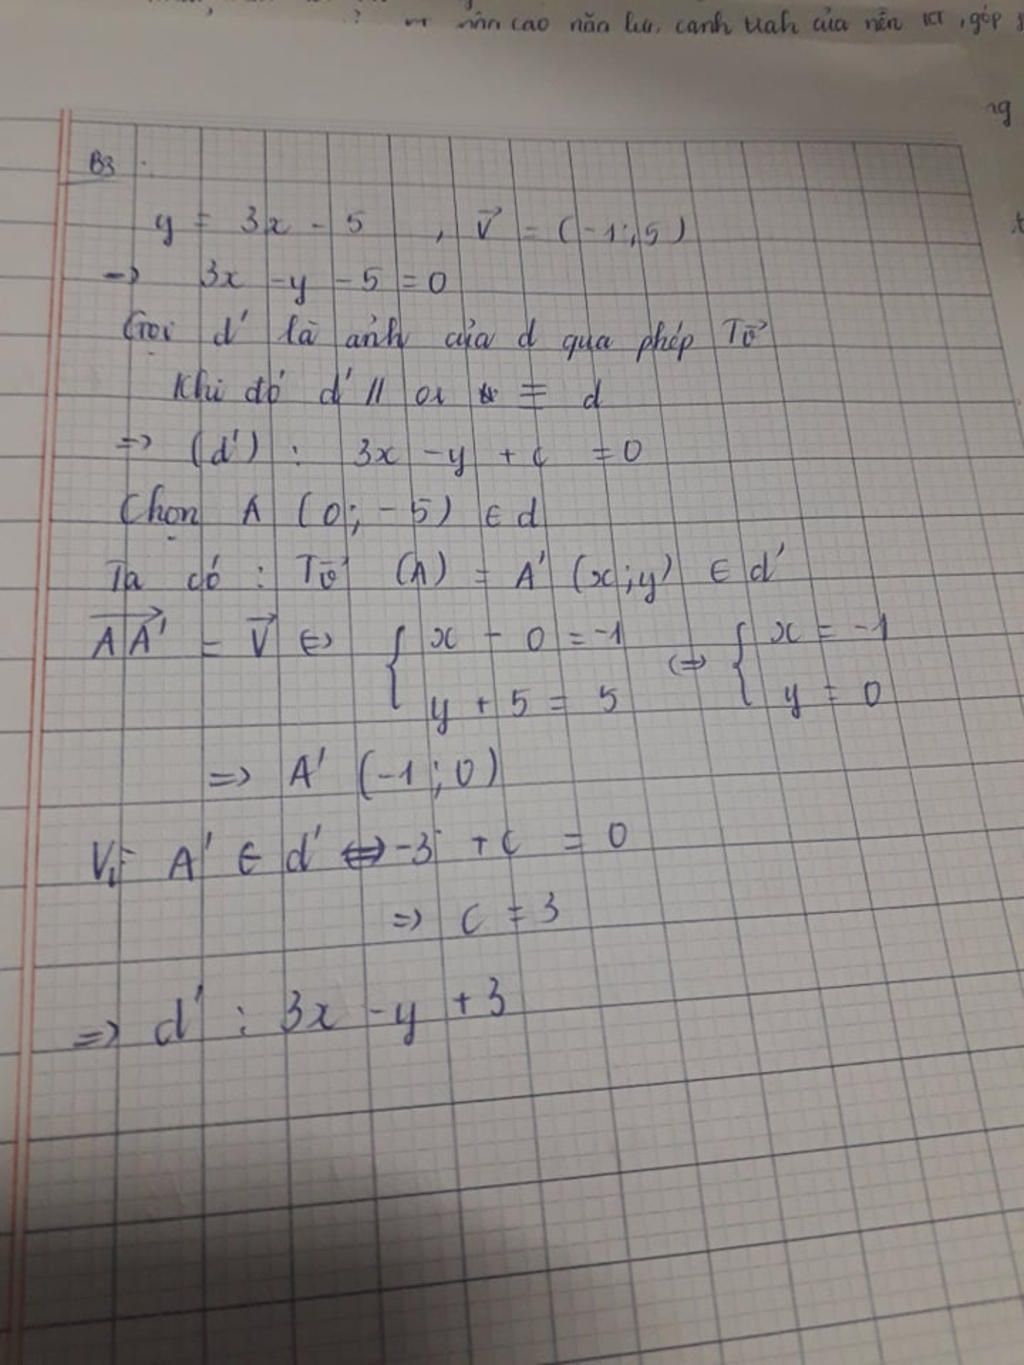 cao năn lực cạnh của nền KT, góp
ng
B3
y = 3x - 5 , V⃗ = (-1;5)
→ 3x - y - 5 = 0
Gọi d' là ảnh của d qua phép Tv⃗
Khi đó d' // or ≡ d
=> (d') : 3x - y + c = 0
Chọn A (0; -5) ∈ d
Ta có : Tv⃗ (A) = A' (x;y) ∈ d'
AA'⃗ = V⃗ <=> { x - 0 = -1 <=> { x = -1
y + 5 = 5 y = 0
=> A' (-1;0)
Vì A' ∈ d' <=> -3 + c = 0
=> c = 3
=> d' : 3x - y + 3